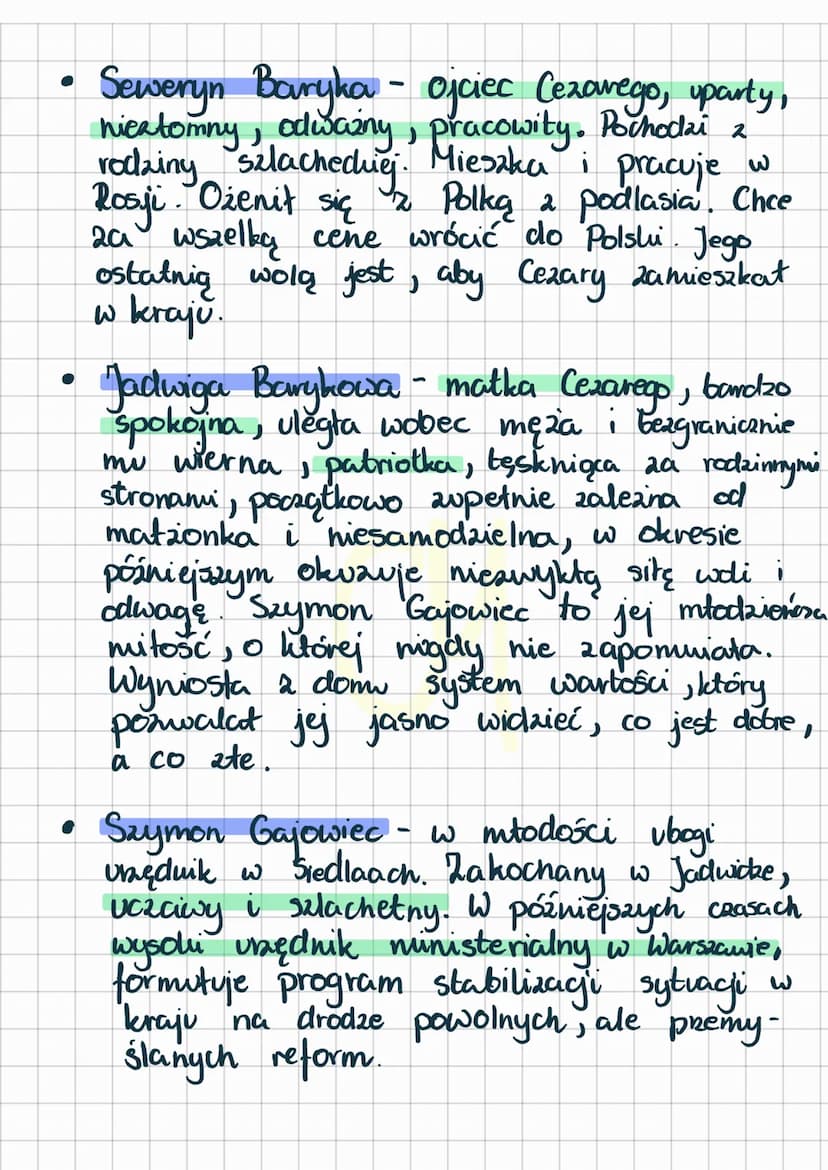 • Seweryn Baryka - ojciec Cezarego, uparty,
niezłomny, odważny, pracowity. Pochodzi z
rodziny szlacheckiej. Mieszka i pracuje w
Rosji. Ożenił się z Polką z podlasia. Chce
za wszelką cene wrócić do Polski. Jego
ostatnią wolą jest, aby Cezary zamieszkał
w kraju.
• Jadwiga Barykowa - matka Cezarego, bardzo
spokojna, uległa wobec męża i bezgranicznie
mu wierna, patriotka, tęskniąca za rodzinnymi
stronami, początkowo zupełnie zależna od
małżonka i niesamodzielna, w okresie
późniejszym okazuje niezwykłą siłę woli i
odwagę. Szymon Gajowiec to jej młodzieńcza
miłość, o której nigdy nie zapomniała.
Wyniosła z domu system wartości, który
pozwalał jej jasno widzieć, co jest dobre,
a co złe.
• Szymon Gajowiec - w młodości ubogi
urzędnik w Siedlaach. Zakochany w Jadwidze,
uczciwy i szlachetny. W późniejszych czasach
wysoki urzędnik ministerialny w Warszawie,
formułuje program stabilizacji sytuacji w
kraju na drodze powolnych, ale przemy-
ślanych reform.